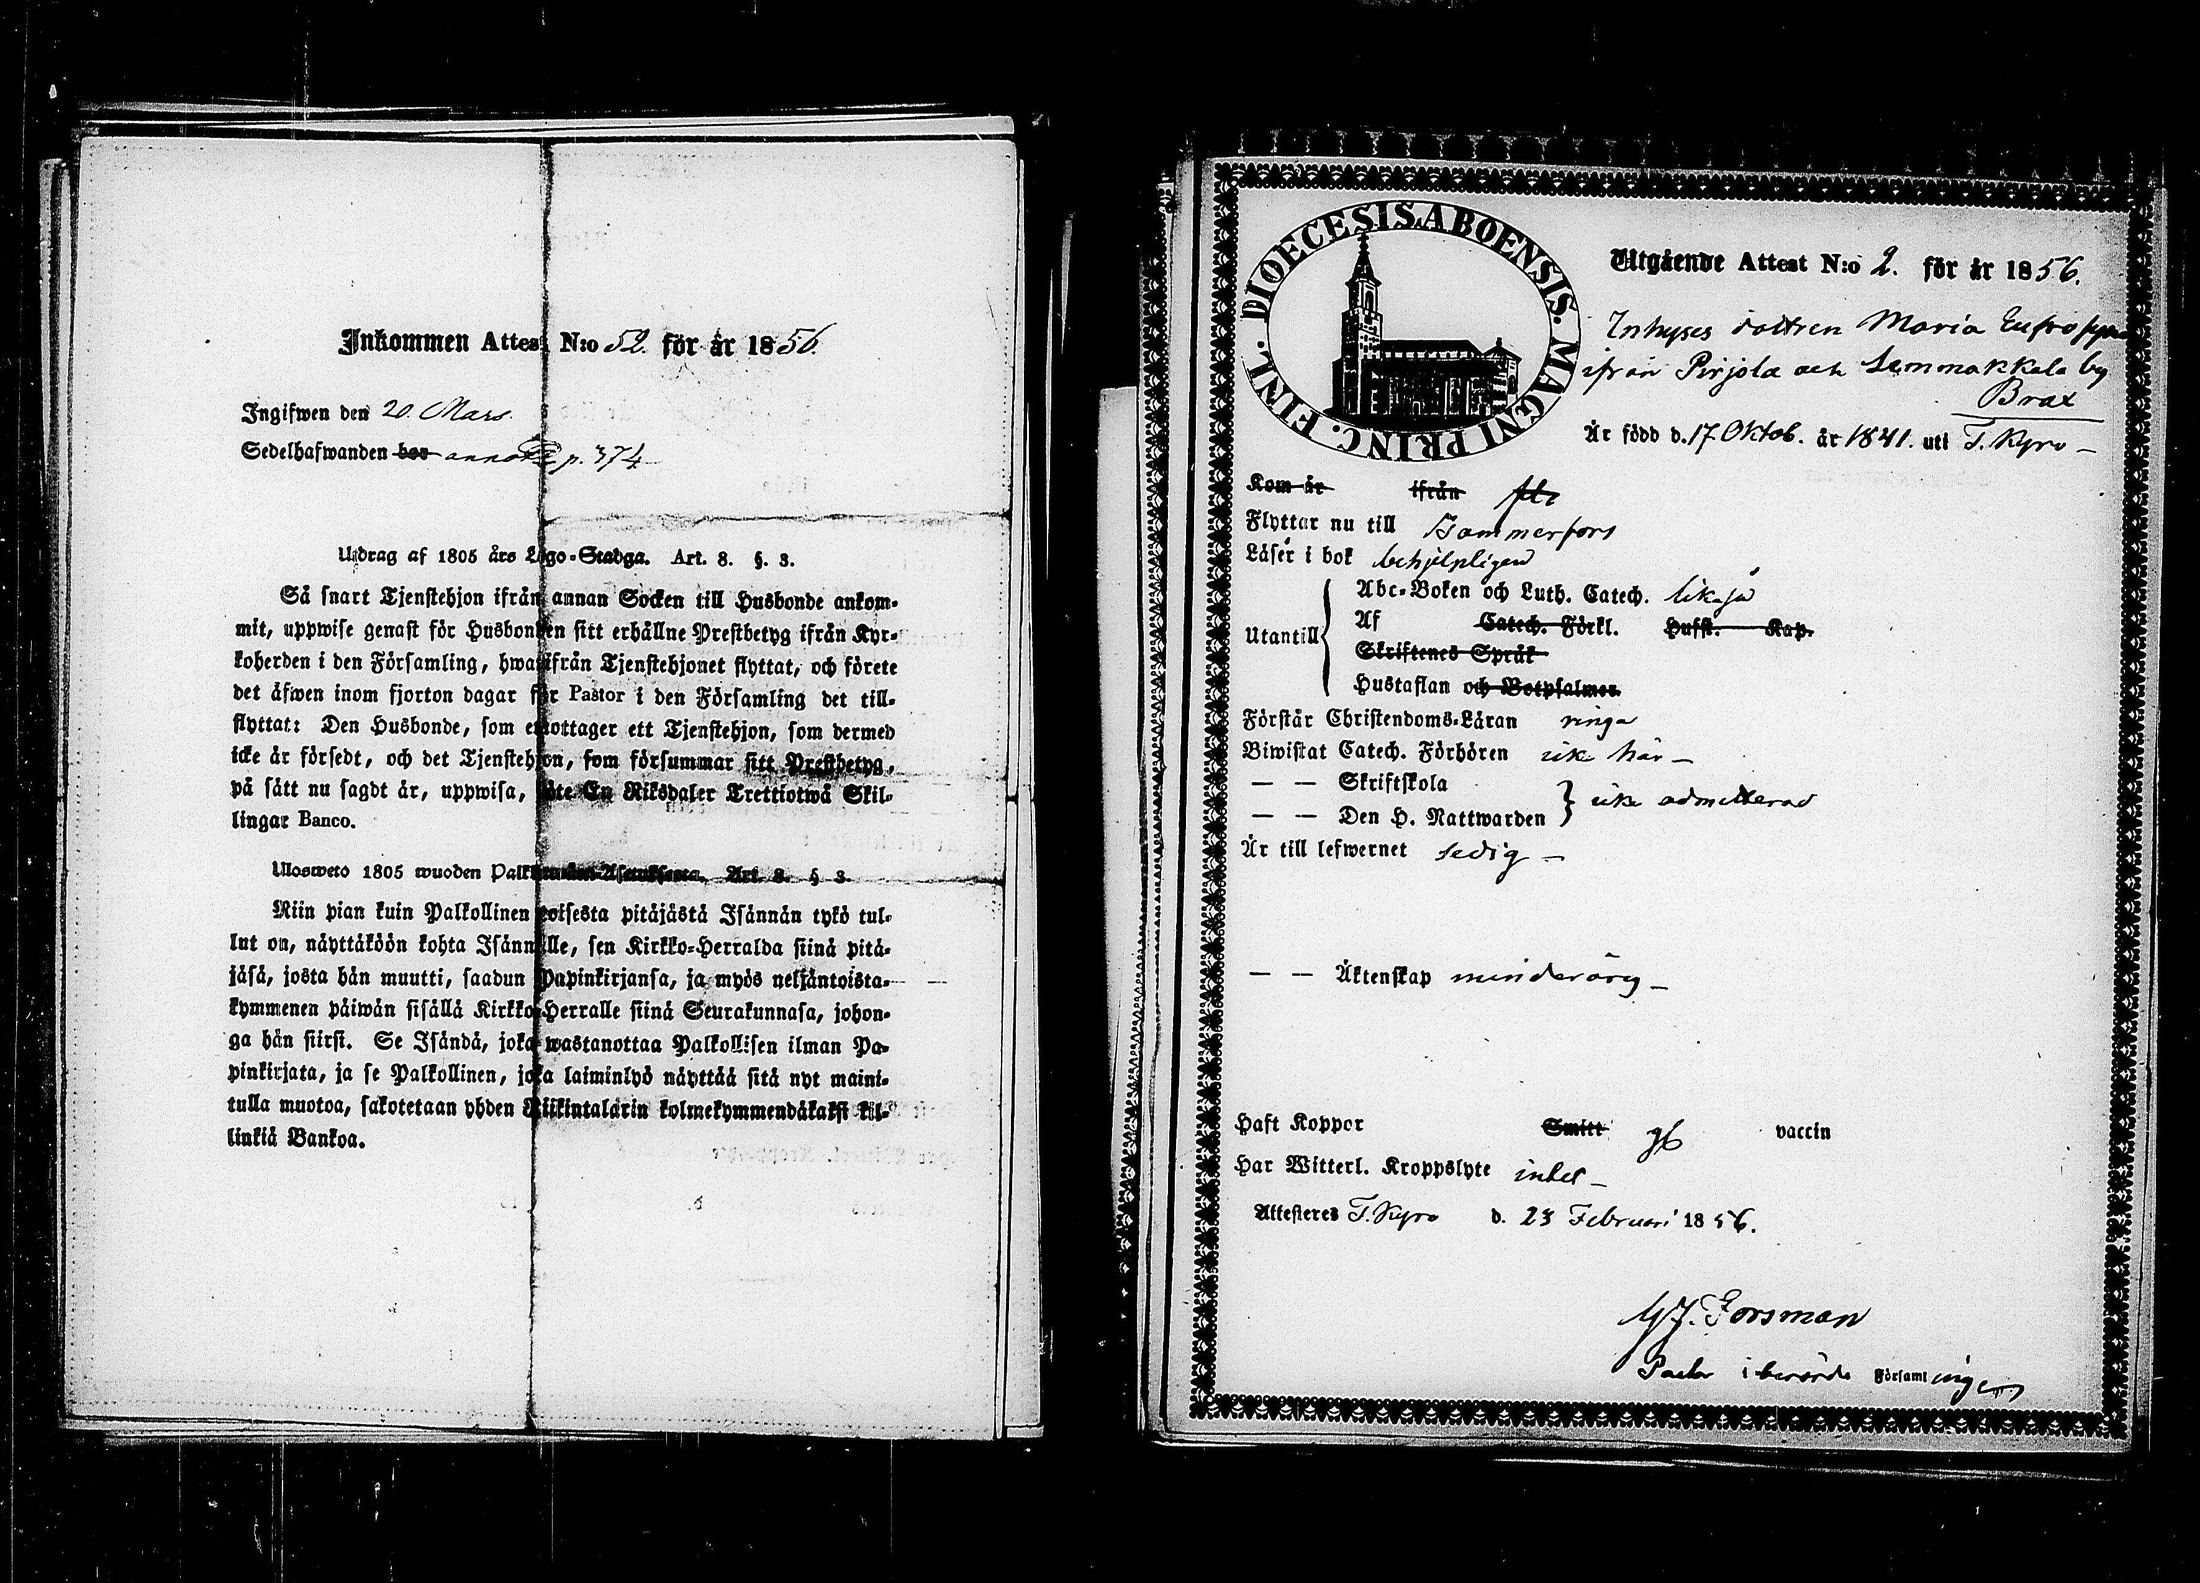 Inkommen Attest N:o 52. för år 1856.
Ingifwen den 20. Mars
Sedelhafwanden bor p. 374
Utdrag af 1805 års Lego-Stadga. Art. 8. §. 3.
Så snart Tjenstehjon ifrån annan Socken till Husbonde ankom-
mit, uppwise genast för Husbonden sitt erhållne Prestbetyg ifrån Kyr-
koherden i den Församling, hwarifrån Tjenstehjonet flyttat, och förete
det äfwen inom fjorton dagar för Pastor i den Församling det till-
flyttat: Den Husbonde, som emottager ett Tjenstehjon, som dermed
icke är försedt, och det Tjenstehjon, som försummar sitt Prestbetyg,
på sätt nu sagdt är, uppwisa, böte En Riksdaler Trettiotwå Skil-
lingar Banco.
Ulosweto 1805 wuoden Palkollisten-Asetuksesta. Art. 8. § 3.
Niin pian kuin Palkollinen toisesta pitäjästä Isännän tykö tul-
lut on, näyttäköön kohta Isännälle, sen Kirkko-Herralda siinä pitä-
jäsä, josta hän muutti, saadun Papinkirjansa, ja myös neljäntoista-
kymmenen päiwän sisällä Kirkko-Herralle siinä Seurakunnasa, johon-
ga hän siirsi. Se Isändä, joka wastanottaa Palkollisen ilman Pa-
pinkirjata, ja se Palkollinen, joka laiminlyö näyttää sitä nyt maini-
tulla muotoa, sakotetaan yhden Riikintalarin kolmekymmendäkaksi kil-
linkiä Bankoa.
DIOECESIS ABOENSIS. MAGNI PRINC. FINL.
Utgående Attest N:o 2. för år 1856.
Inhyses dottren Maria Eufrosyna
ifrån Pirjola och Lemmakkala by
Brax
Är född d. 17. Oktob. år 1841. uti T. Kyro –
Kom år ifrån
Flyttar nu till Tammerfors
Läser i bok behjelpligen
Utantill Abc-Boken och Luth. Catech. likaså
Af Catech. Förkl. Husst. Kap.
Skriftenes Språk
Hustaflan och Botpsalmer.
Förstår Christendoms-Läran ringa
Biwistat Catech. Förhören icke här –
— — Skriftskola
— — Den H. Nattwarden } icke admitterad
Är till lefwernet sedig –
— — Äktenskap minderårig –
Haft Koppor Smitt vaccin
Har Witterl. Kroppslyte intet –
Attesteres T. Kyro d. 23 Februari 1856.
Forsman
Pastor i berörde Församlingen